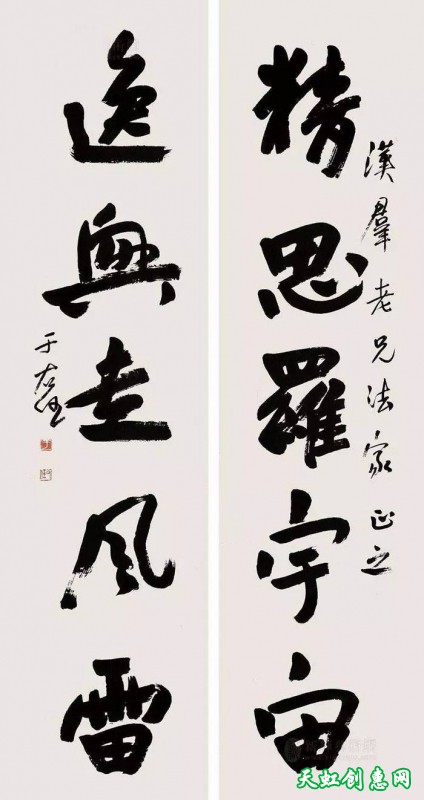 漢羣老兄法家正之
精思羅宇宙
逸興走風雷
于右任
天虹创惠网